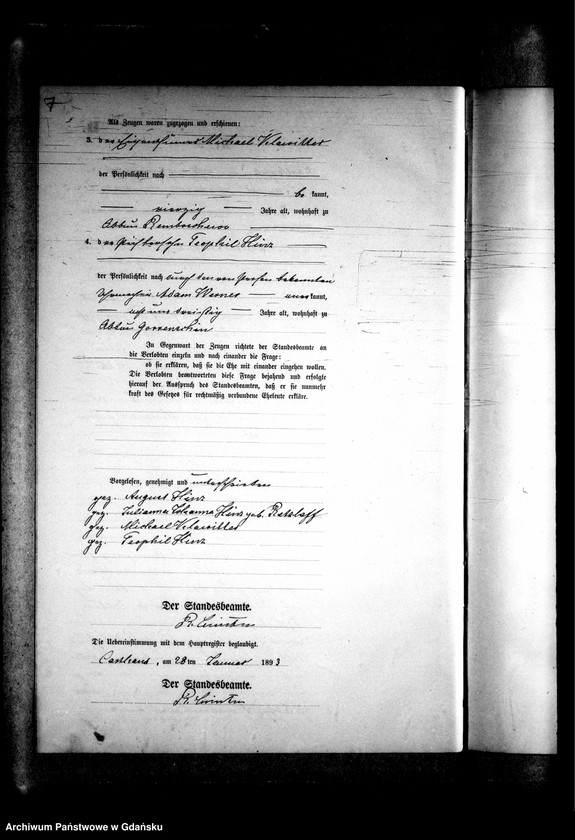 7
Als Zeugen waren zugezogen und erschienen:
3. der Eigenthümer Michael Klawitter
der Persönlichkeit nach
be kannt,
vierzig Jahre alt, wohnhaft zu
Abbau
4. der Teophil Hinz
der Persönlichkeit nach durch den von Person bekannten
Adam anerkannt,
acht und dreißig Jahre alt, wohnhaft zu
Abbau
In Gegenwart der Zeugen richtete der Standesbeamte an
die Verlobten einzeln und nach einander die Frage:
ob sie erklären, daß sie die Ehe mit einander eingehen wollen.
Die Verlobten beantworteten diese Frage bejahend und erfolgte
hierauf der Ausspruch des Standesbeamten, daß er sie nunmehr
kraft des Gesetzes für rechtmäßig verbundene Eheleute erkläre.
Vorgelesen, genehmigt und unterschrieben
gez. August Hinz
gez. Julianna Johanna Hinz geb. Ratzlaff
gez. Michael Klawitter
gez. Teophil Hinz
Der Standesbeamte.
Die Uebereinstimmung mit dem Hauptregister beglaubigt.
Carthaus, am 28 ten Januar 1893
Der Standesbeamte.
Archiwum Państwowe w Gdańsku